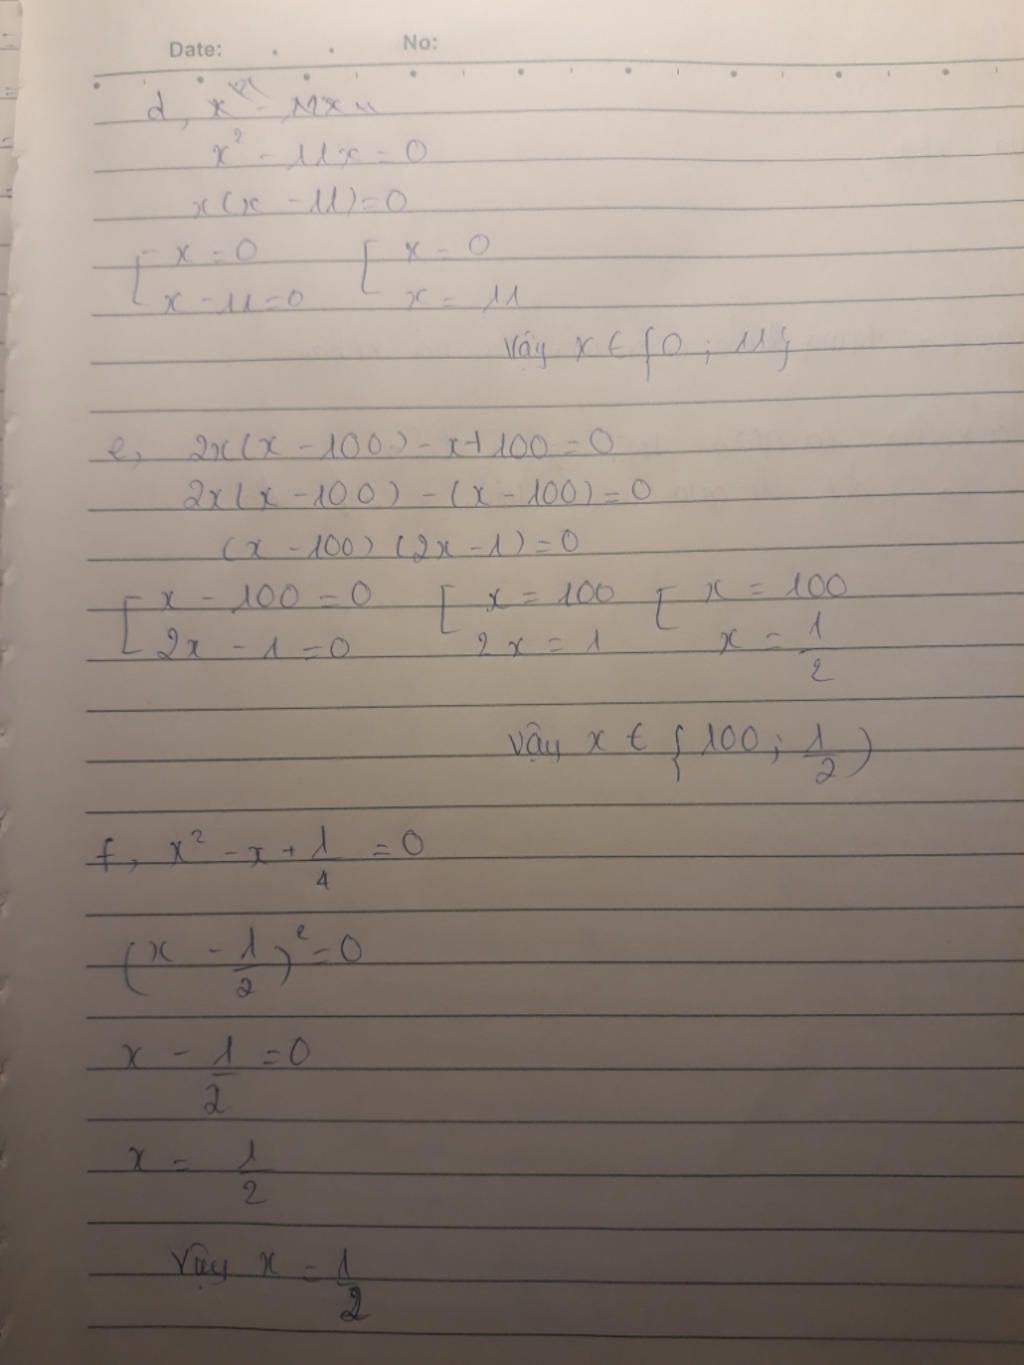 Date: . . No:
d, x² - 11x
x² - 11x = 0
x(x - 11) = 0
[ x = 0 [ x = 0
x - 11 = 0 x = 11
Vậy x ∈ {0 ; 11}
e, 2x(x - 100) - x + 100 = 0
2x(x - 100) - (x - 100) = 0
(x - 100) (2x - 1) = 0
[ x - 100 = 0 [ x = 100 [ x = 100
2x - 1 = 0 2x = 1 x = 1/2
Vậy x ∈ { 100 ; 1/2 )
f, x² - x + 1/4 = 0
(x - 1/2)² = 0
x - 1/2 = 0
x = 1/2
Vậy x = 1/2